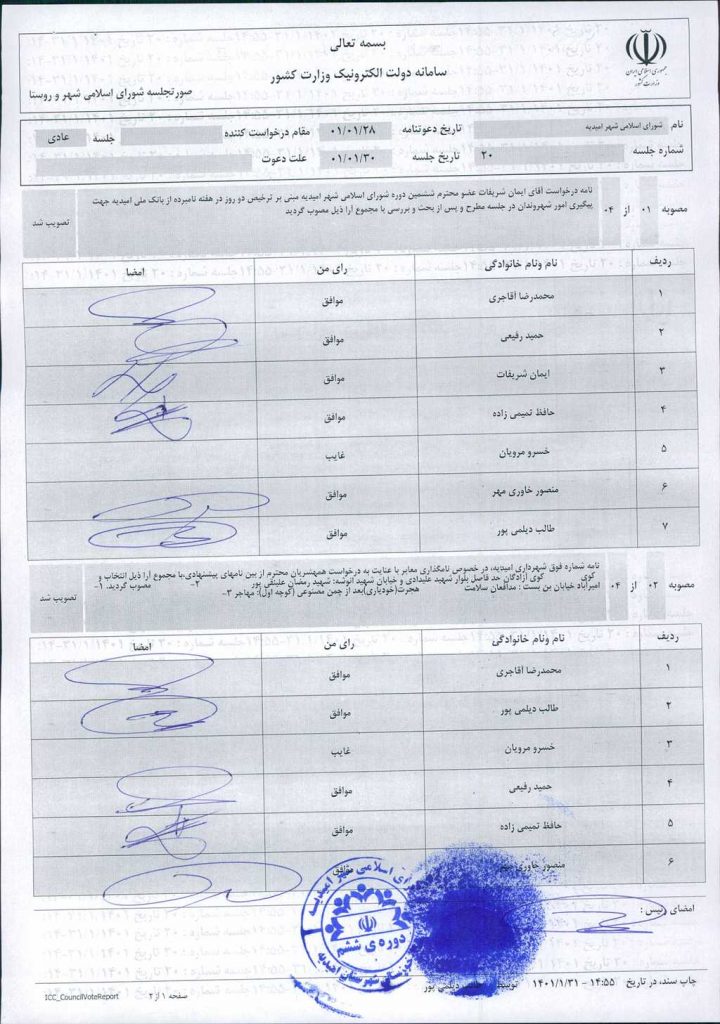 بسمه تعالی
سامانه دولت الکترونیک وزارت کشور
صورتجلسه شورای اسلامی شهر و روستا
جمهوری اسلامی ایران
وزارت کشور
نام شورای اسلامی شهر امیدیه تاریخ دعوتنامه ۰۱/۰۱/۲۸ مقام درخواست کننده جلسه عادی
شماره جلسه ۲۰ تاریخ جلسه ۰۱/۰۱/۳۰ علت دعوت
مصوبه ۰۱ از ۰۴
نامه درخواست آقای ایمان شریفات عضو محترم ششمین دوره شورای اسلامی شهر امیدیه مبنی بر ترخیص دو روز در هفته نامبرده از بانک ملی امیدیه جهت
پیگیری امور شهروندان در جلسه مطرح و پس از بحث و بررسی با مجموع آرا ذیل مصوب گردید
تصویب شد
ردیف نام ونام خانوادگی رای من امضا
۱ محمدرضا آقاجری موافق
۲ حمید رفیعی موافق
۳ ایمان شریفات موافق
۴ حافظ تمیمی زاده موافق
۵ خسرو مرویان غایب
۶ منصور خاوری مهر موافق
۷ طالب دیلمی پور موافق
مصوبه ۰۲ از ۰۴
نامه شماره فوق شهرداری امیدیه، در خصوص نامگذاری معابر با عنایت به درخواست همشهریان محترم از بین نامهای پیشنهادی،با مجموع آرا ذیل انتخاب و
مصوب گردید. ۱- کوی آزادگان حد فاصل بلوار شهید علیدادی و خیابان شهید انوشه: شهید رمضان علینقی پور ۲- کوی
امیرآباد خیابان بن بست : مدافعان سلامت هجرت(خودیاری)بعد از چمن مصنوعی (کوچه اول): مهاجر ۳-
تصویب شد
ردیف نام ونام خانوادگی رای من امضا
۱ محمدرضا آقاجری موافق
۲ طالب دیلمی پور موافق
۳ خسرو مرویان غایب
۴ حمید رفیعی موافق
۵ حافظ تمیمی زاده موافق
۶ منصور خاوری مهر موافق
امضای رئیس :
شورای اسلامی شهر امیدیه
دوره ی ششم
خوزستان شهرستان امیدیه
چاپ سند، در تاریخ ۱۴:۵۵ - ۱۴۰۱/۱/۳۱ توسط دیلمی پور
صفحه ۱ از ۲
ICC_CouncilVoteReport